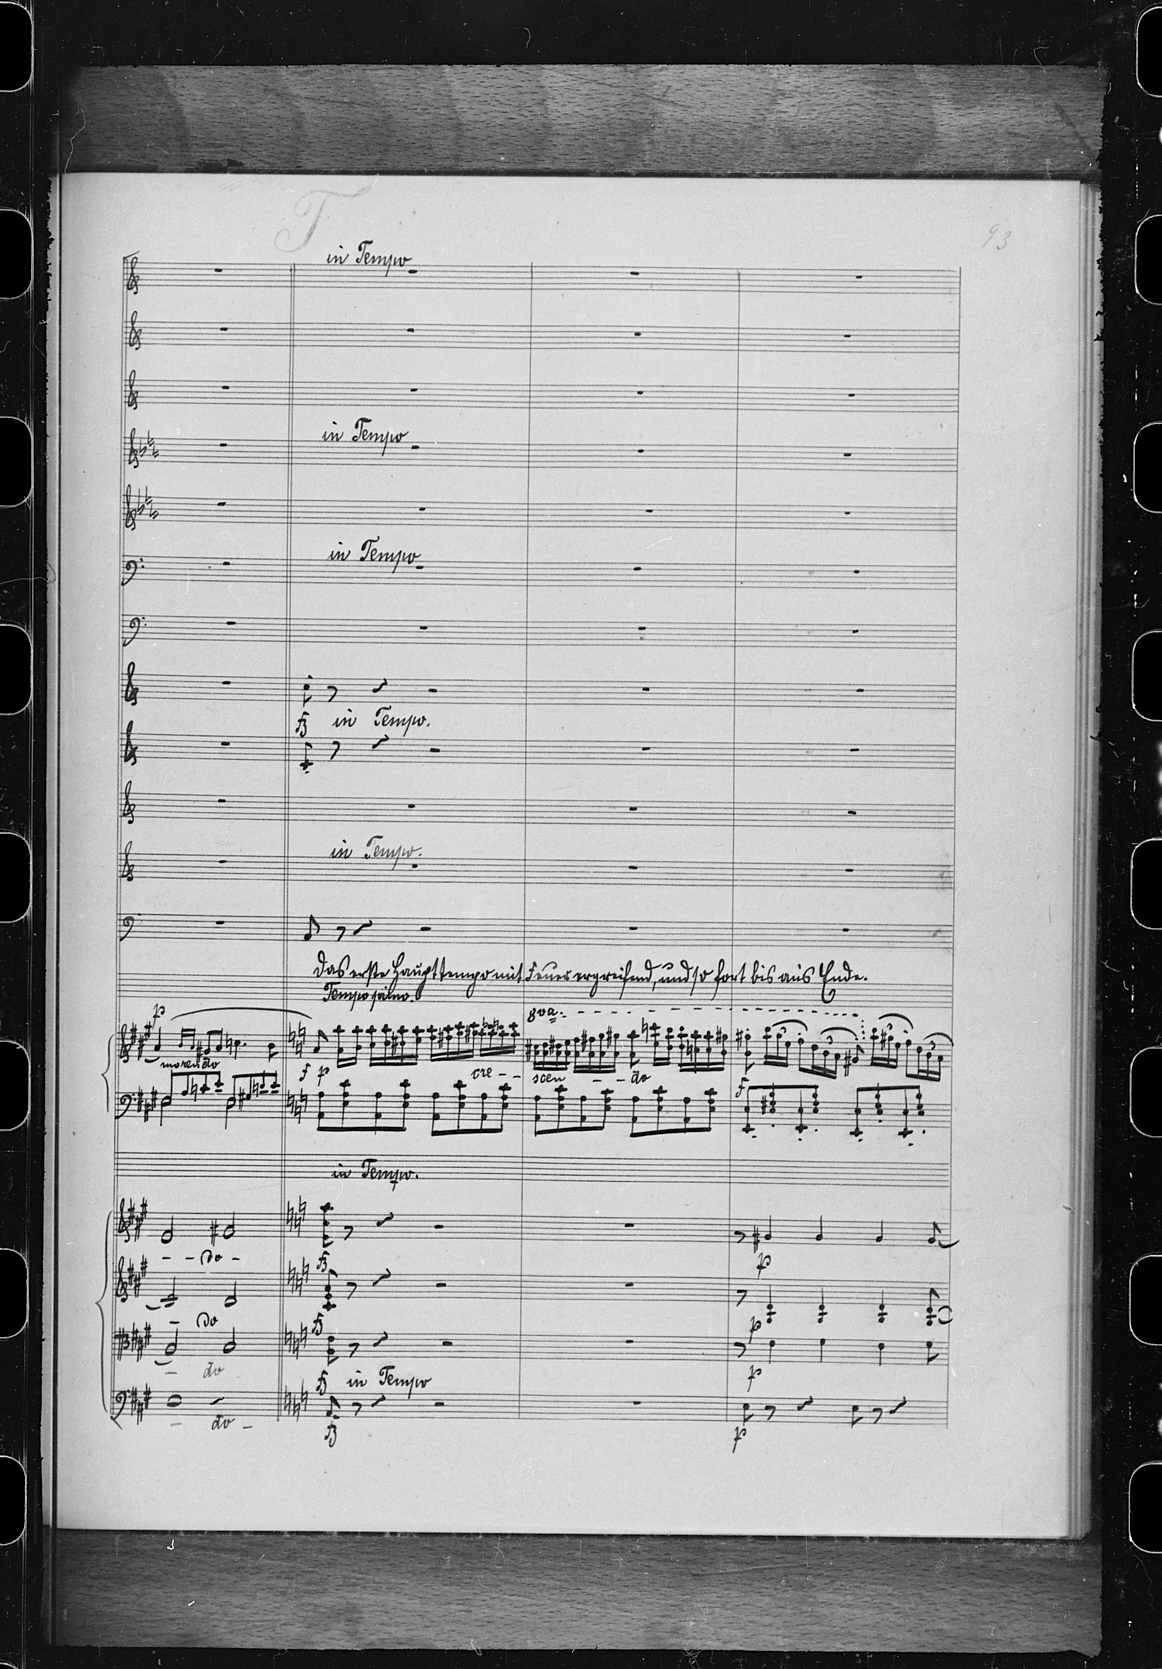 T
93
in Tempo
in Tempo
in Tempo
fz in Tempo.
in Tempo.
Das erste Haupttempo mit Feuer ergreifend, und so fort bis ans Ende.
Tempo primo.
8va.
p
morendo
f p cre - - scen - - do f
3 3 3 3
in Tempo.
- - do -
fz p
- do
fz p
- do
fz in Tempo p
- do -
fz p